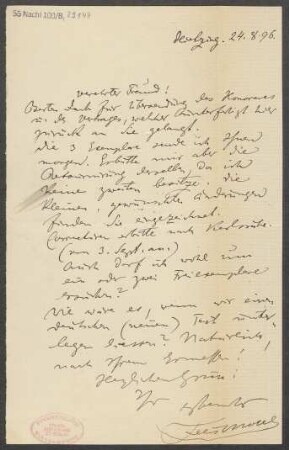 SG Nachl 100/B,
24.8.96.
verehrter Freund!
Besten Dank für Übersendung des Honorares
u. des Vertrages, welcher unterfertigt hier
zurück an Sie gelangt.
Die 3 Exemplare sende ich Ihnen
morgen. Erbitte mir aber die
Retournirung derselben, da ich
keine zweiten besitze. Die
kleinen, gewünschten Änderungen
finden Sie eingezeichnet.
Correcturen erbitte nach Karlsruhe.
(vom 3. Sept. an.)
Auch darf ich wohl um
ein oder zwei Freiexemplare
ersuchen?
Wie wäre es, wenn wir einen
deutschen (neuen) Text unter
legen liessen? Natürlich,
nach Ihrem Ermessen!
Herzlichen Gruss!
Ihr ergebenster
Felix Mottl